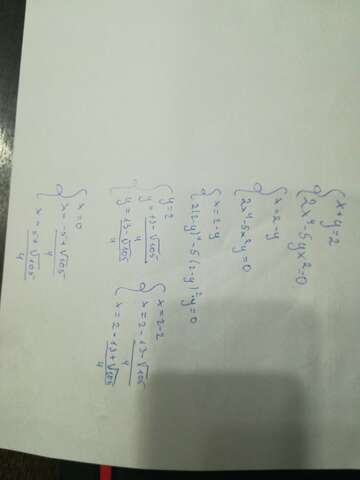 x+y=2
2x⁴-5yx²=0
x=2-y
2x⁴-5x²y=0
x=2-y
2(2-y)⁴-5(2-y)²y=0
y=2
y=13-√105/4
y=13-√105/4
x=2-2
x=2-13-√105/4
x=2-13+√105/4
x=0
x=-5+√105/4
x=-5+√105/4